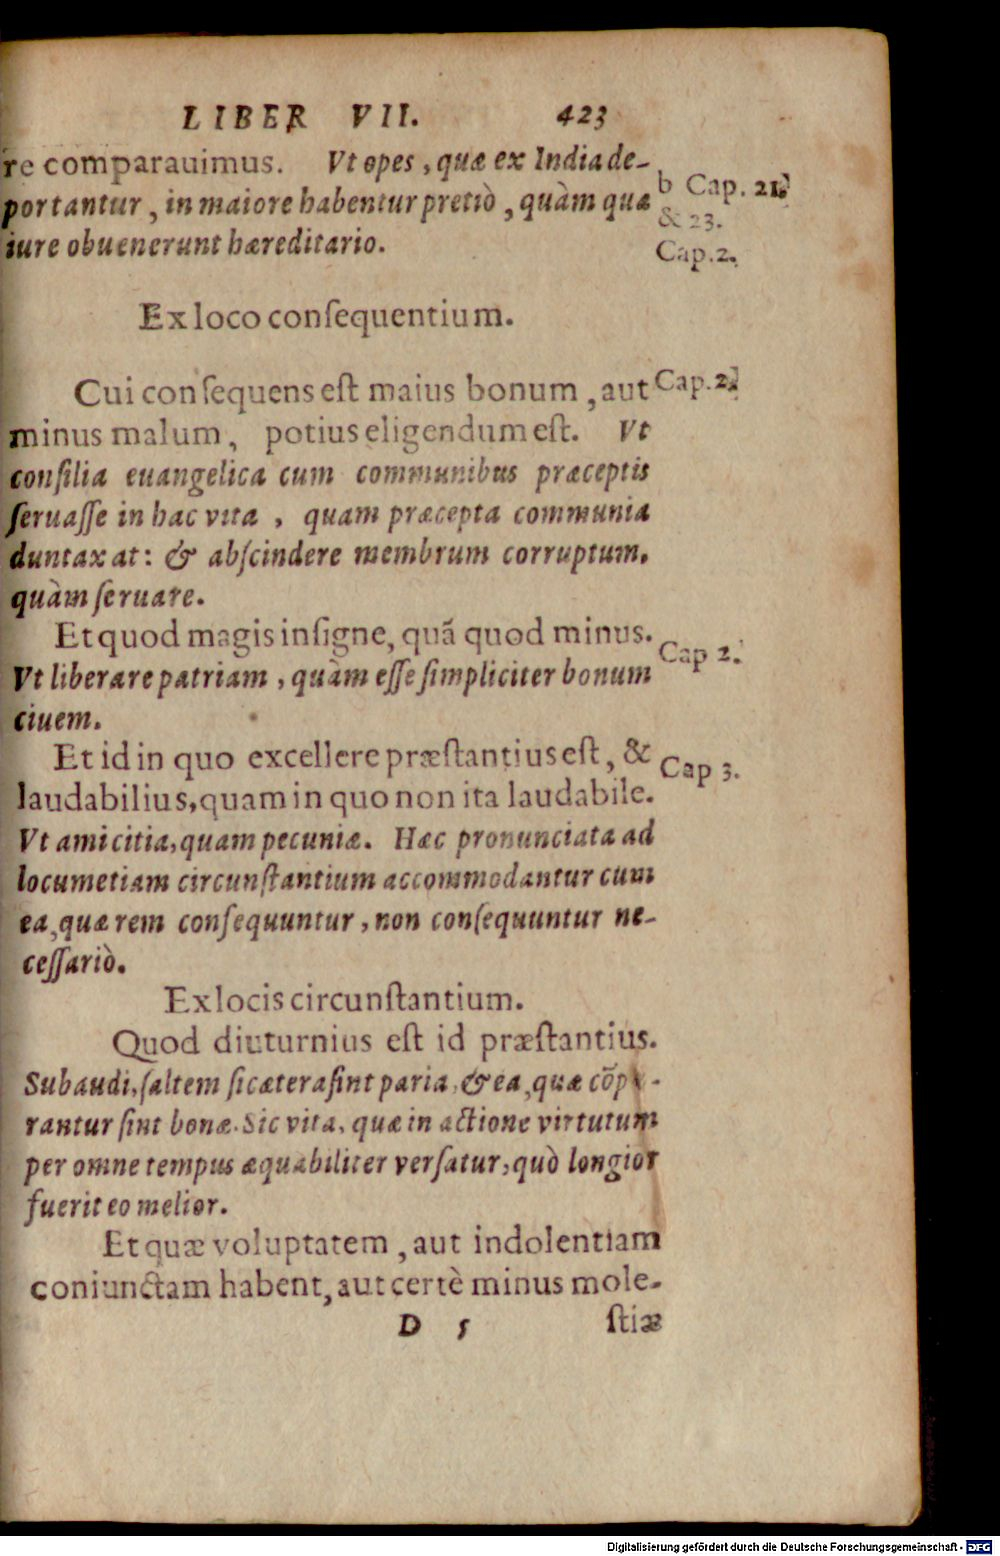 LIBER VII. 423
re comparauimus. Vt opes, quæ ex India de-
portantur, in maiore habentur pretiò, quàm quæ
iure obuenerunt hæreditario.
b Cap. 21.
& 23.
Cap. 2.
Ex loco conſequentium.
Cui conſequens eſt maius bonum, aut
minus malum, potius eligendum eſt. Vt
conſilia euangelica cum communibus præceptis
ſeruaſſe in hac vita, quam præcepta communia
duntaxat: & abſcindere membrum corruptum,
quàm ſeruare.
Cap. 2.
Et quod magis inſigne, quã quod minus.
Vt liberare patriam, quàm eſſe ſimpliciter bonum
ciuem.
Cap 2.
Et id in quo excellere præſtantius eſt, &
laudabilius, quam in quo non ita laudabile.
Vt amicitia, quam pecuniæ. Hæc pronunciata ad
locum etiam circunſtantium accommodantur cum
ea, quæ rem conſequuntur, non conſequuntur ne-
ceſſariò.
Cap 3.
Ex locis circunſtantium.
Quod diuturnius eſt id præſtantius.
Subaudi, ſaltem ſi cætera ſint paria, & ea, quæ cõpa-
rantur ſint bona. Sic vita, quæ in actione virtutum
per omne tempus æquabiliter verſatur, quò longior
fuerit eo melior.
Et quæ voluptatem, aut indolentiam
coniunctam habent, aut certè minus mole-
D 5 ſtiæ
Digitalisierung gefördert durch die Deutsche Forschungsgemeinschaft - DFG